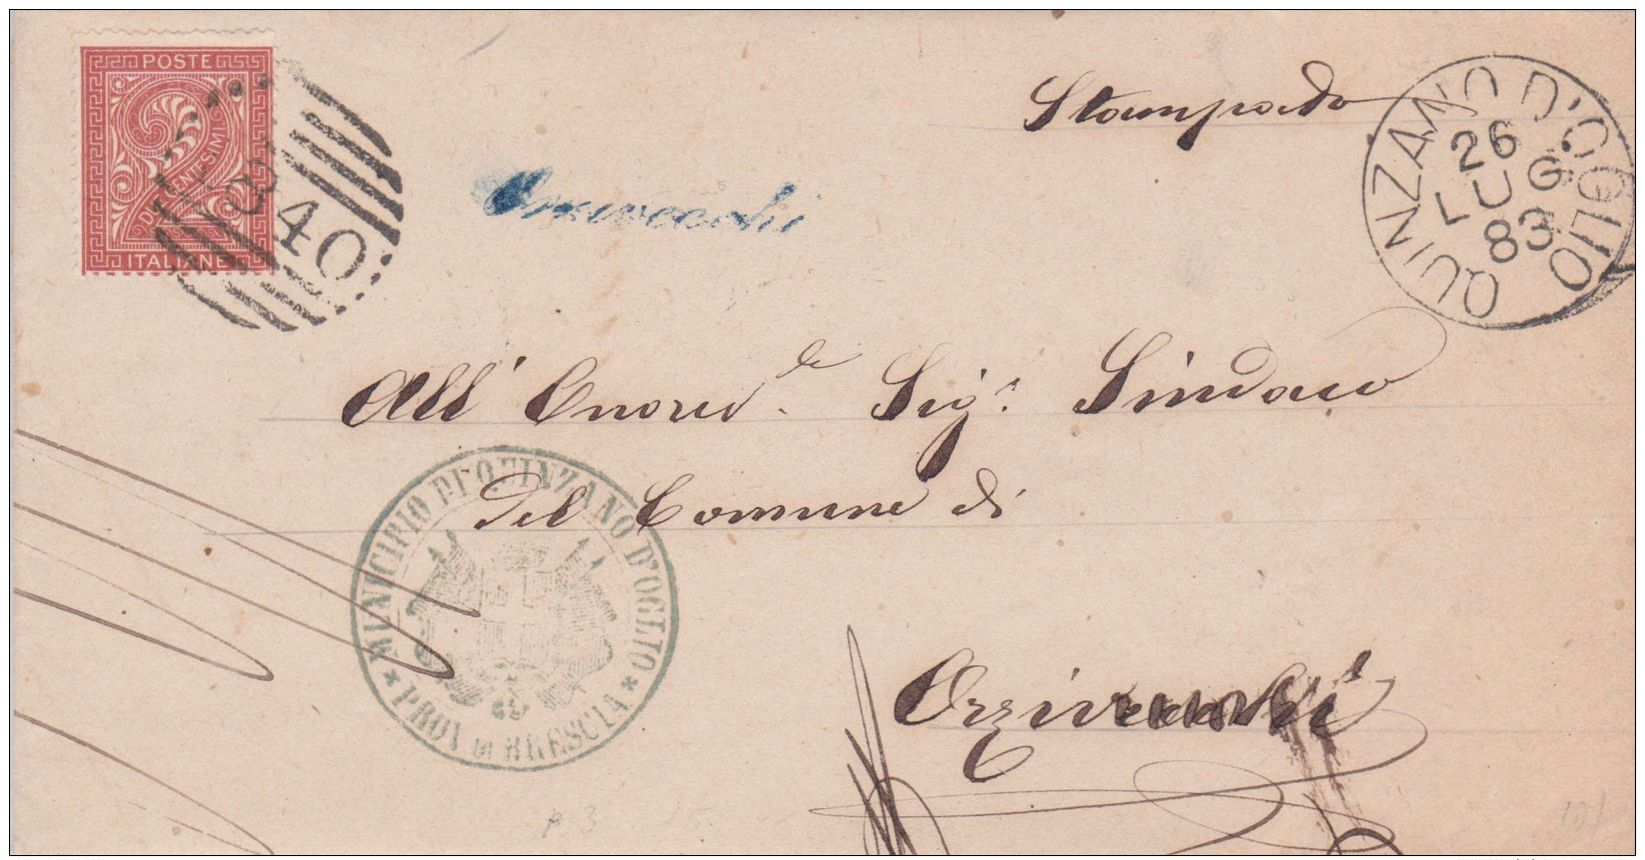 POSTE
DUE CENTESIMI
ITALIANE
1840
Stampato
QUINZANO D'OGLIO
26
LUG
83
Orzivecchi
All' Onorev.le Sig.r Sindaco
del Comune di
MUNICIPIO DI QUINZANO D'OGLIO
* PROV. DI BRESCIA *
Orzivecchi